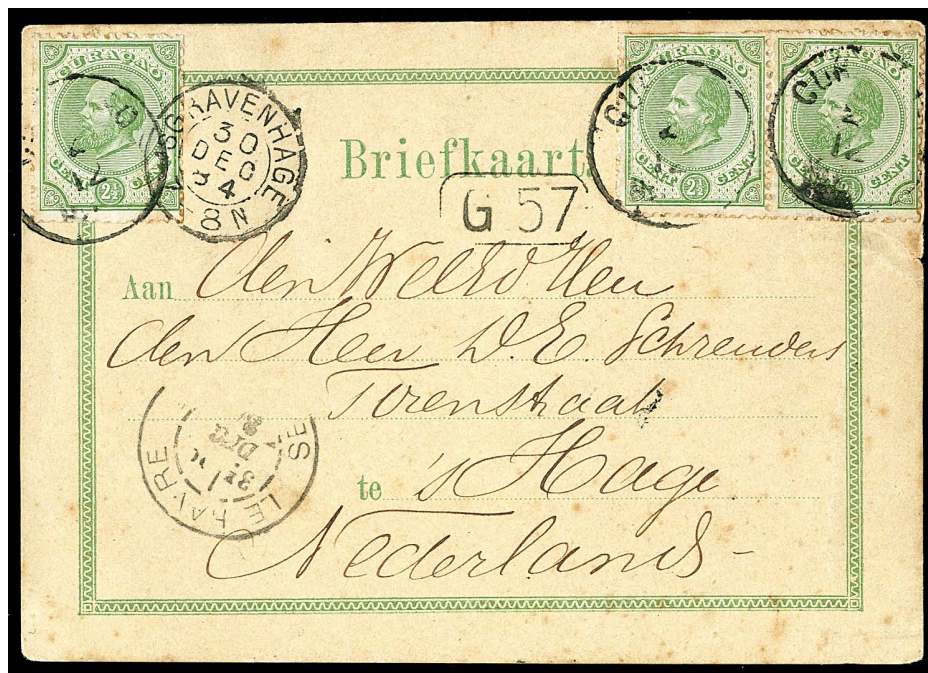 CURAÇAO
2½
CENT CENT
'S GRAVENHAGE
30
DEC
84
8 N
CURAÇAO
2½
CENT CENT
CURAÇAO
CENT CENT
Briefkaart
G 57
Aan den WelEd Heer
den Heer D. E. Schreuders
Torenstraat
te 's Hage
Nederland
LE HAVRE
DEC